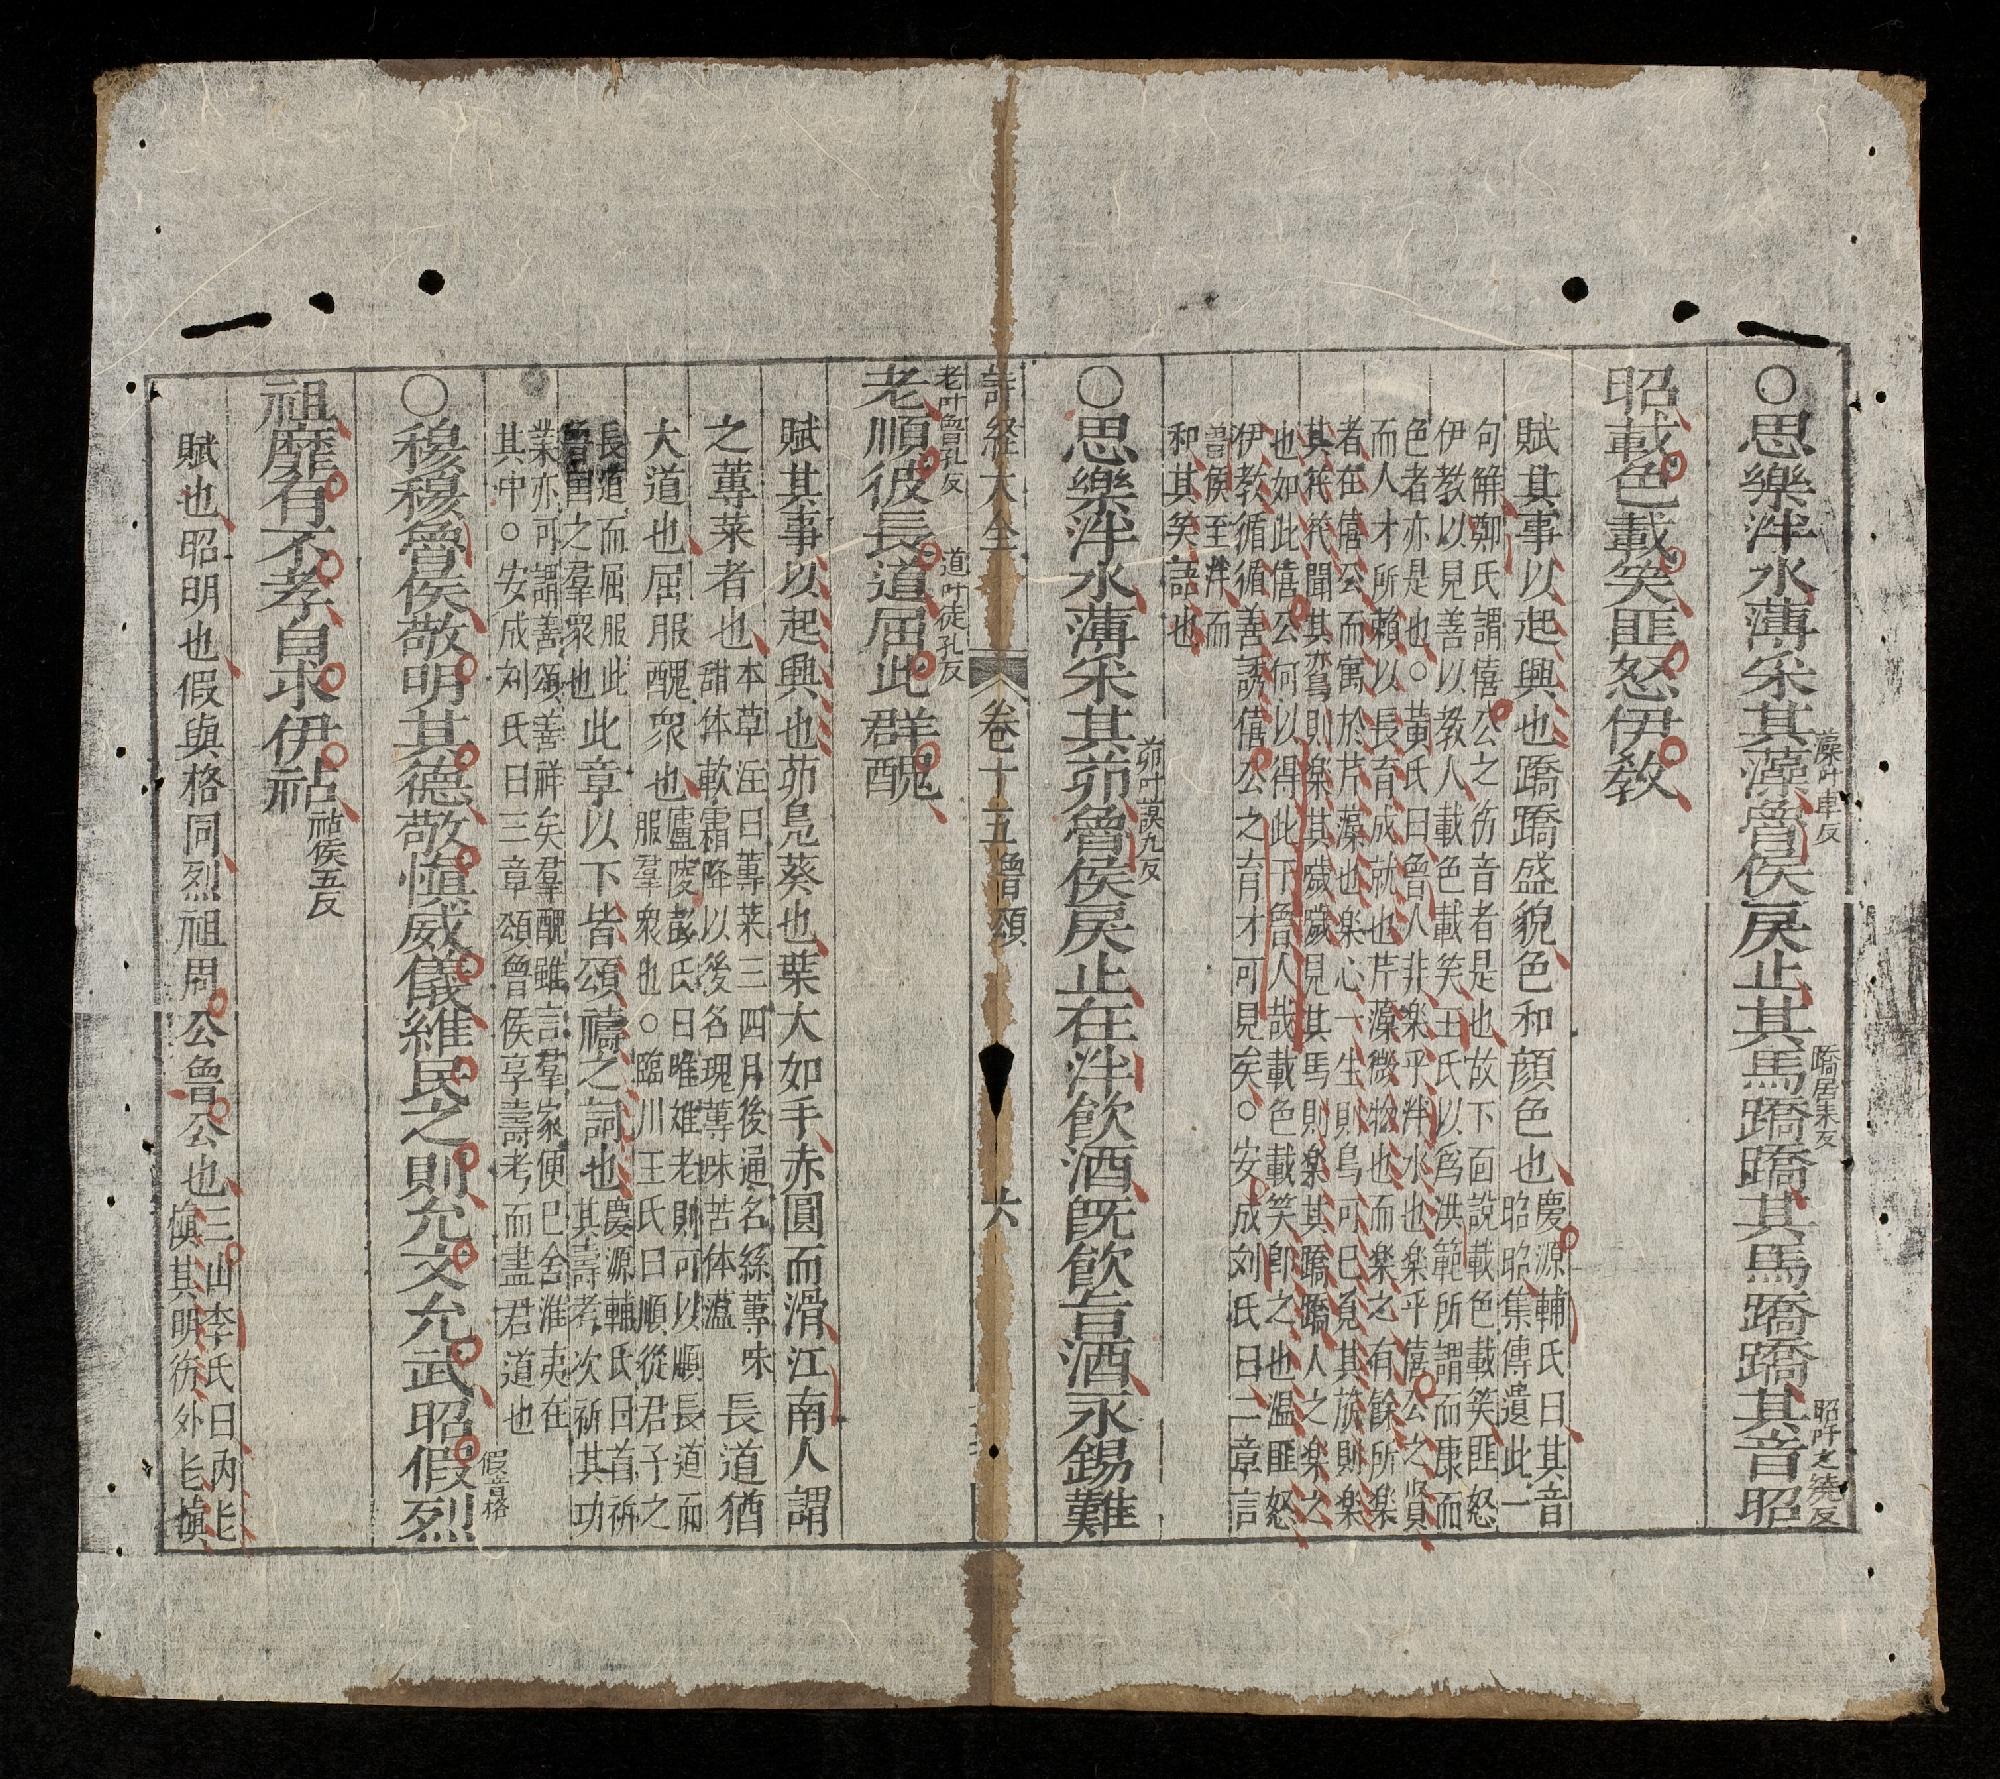 ○思樂泮水薄采其藻魯侯戾止其馬蹻蹻其馬蹻蹻其音昭
藻叶卓反
蹻居表反
昭叶之繞反
昭載色載笑匪怒伊敎
賦其事以起興也蹻蹻盛貌色和顔色也
慶源輔氏曰其音
昭昭集傳遺此一
句解鄭氏謂僖公之德音者是也故下面說載色載笑匪怒
伊敎以見善以敎人載色載笑王氏以爲洪範所謂而康而
色者亦是也○黃氏曰魯人非楽乎泮水也楽乎僖公之賢
而人才所賴以長育成就也芹藻微物也而楽之有餘所楽
者在僖公而寓於芹藻也楽心一生則鳥可巳覓其旂則楽
其茷茷聞其鸞則楽其噦噦見其馬則楽其蹻蹻人之楽之
也如此僖公何以得此下魯人哉載色載笑卽之也温匪怒
伊敎循循善誘僖公之育才可見矣○安成刘氏曰二章言
魯侯至泮而
和其笑語也
○思樂泮水薄采其茆魯侯戾止在泮飮酒旣飮旨酒永錫難
茆叶謨九反
老順彼長道屈此群醜
老叶魯孔反
道叶徒孔反
詩経大全
卷十五
魯頌
六
賦其事以起興也茆鳧葵也葉大如手赤圓而滑江南人謂
之蓴菜者也
本草注曰蓴菜三四月後通名絲蓴味
甜体軟霜降以後名瑰蓴味苦体澁
長道猶
大道也屈服醜衆也
廬陵彭氏曰唯难老則可以順長道而
服羣衆也○臨川王氏曰順從君子之
長道而屈服此
魯国之羣衆也
此章以下皆頌禱之詞也
慶源輔氏曰首祈
其壽考次祈其功
業亦可謂善頌善祥矣羣醜雖言羣家便巳舍淮夷在
其中○安成刘氏曰三章頌魯侯享壽考而盡君道也
○穆穆魯侯敬明其德敬愼威儀維民之則允文允武昭假烈
假音格
祖靡有不孝自求伊祜
祜侯五反
賦也昭明也假與格同烈祖周公魯公也
三山李氏曰内能
愼其明德外能愼